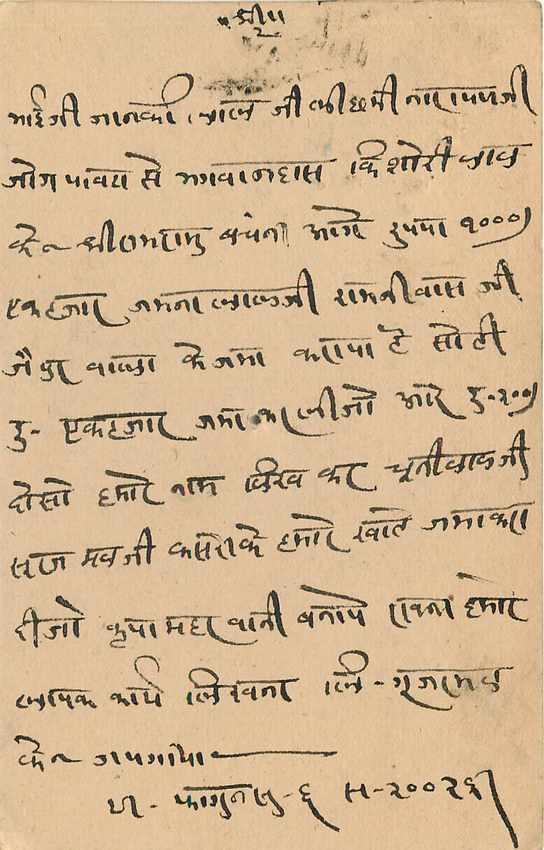 श्री
भाईजी जानकी लाल जी लीछमी नारायणजी
जोग पावटा से भगवानदास किशोरीलाल
केन श्री बंचना आगे रुपया १०००)
एकहजार जमनालालजी रामनीवास जी
वाला के जमा कराया है सो
रु- एकहजार जमा कर लीजो और रु-२००)
दोसो हमारे नाम लिख कर चूनीलालजी
के हमारे खाते जमा करा
दीजो कृपा महरवानी बनाये रखना हमारे
लायक कार्य लिखना लि-
केन
फागुन सु-६ स-२००२